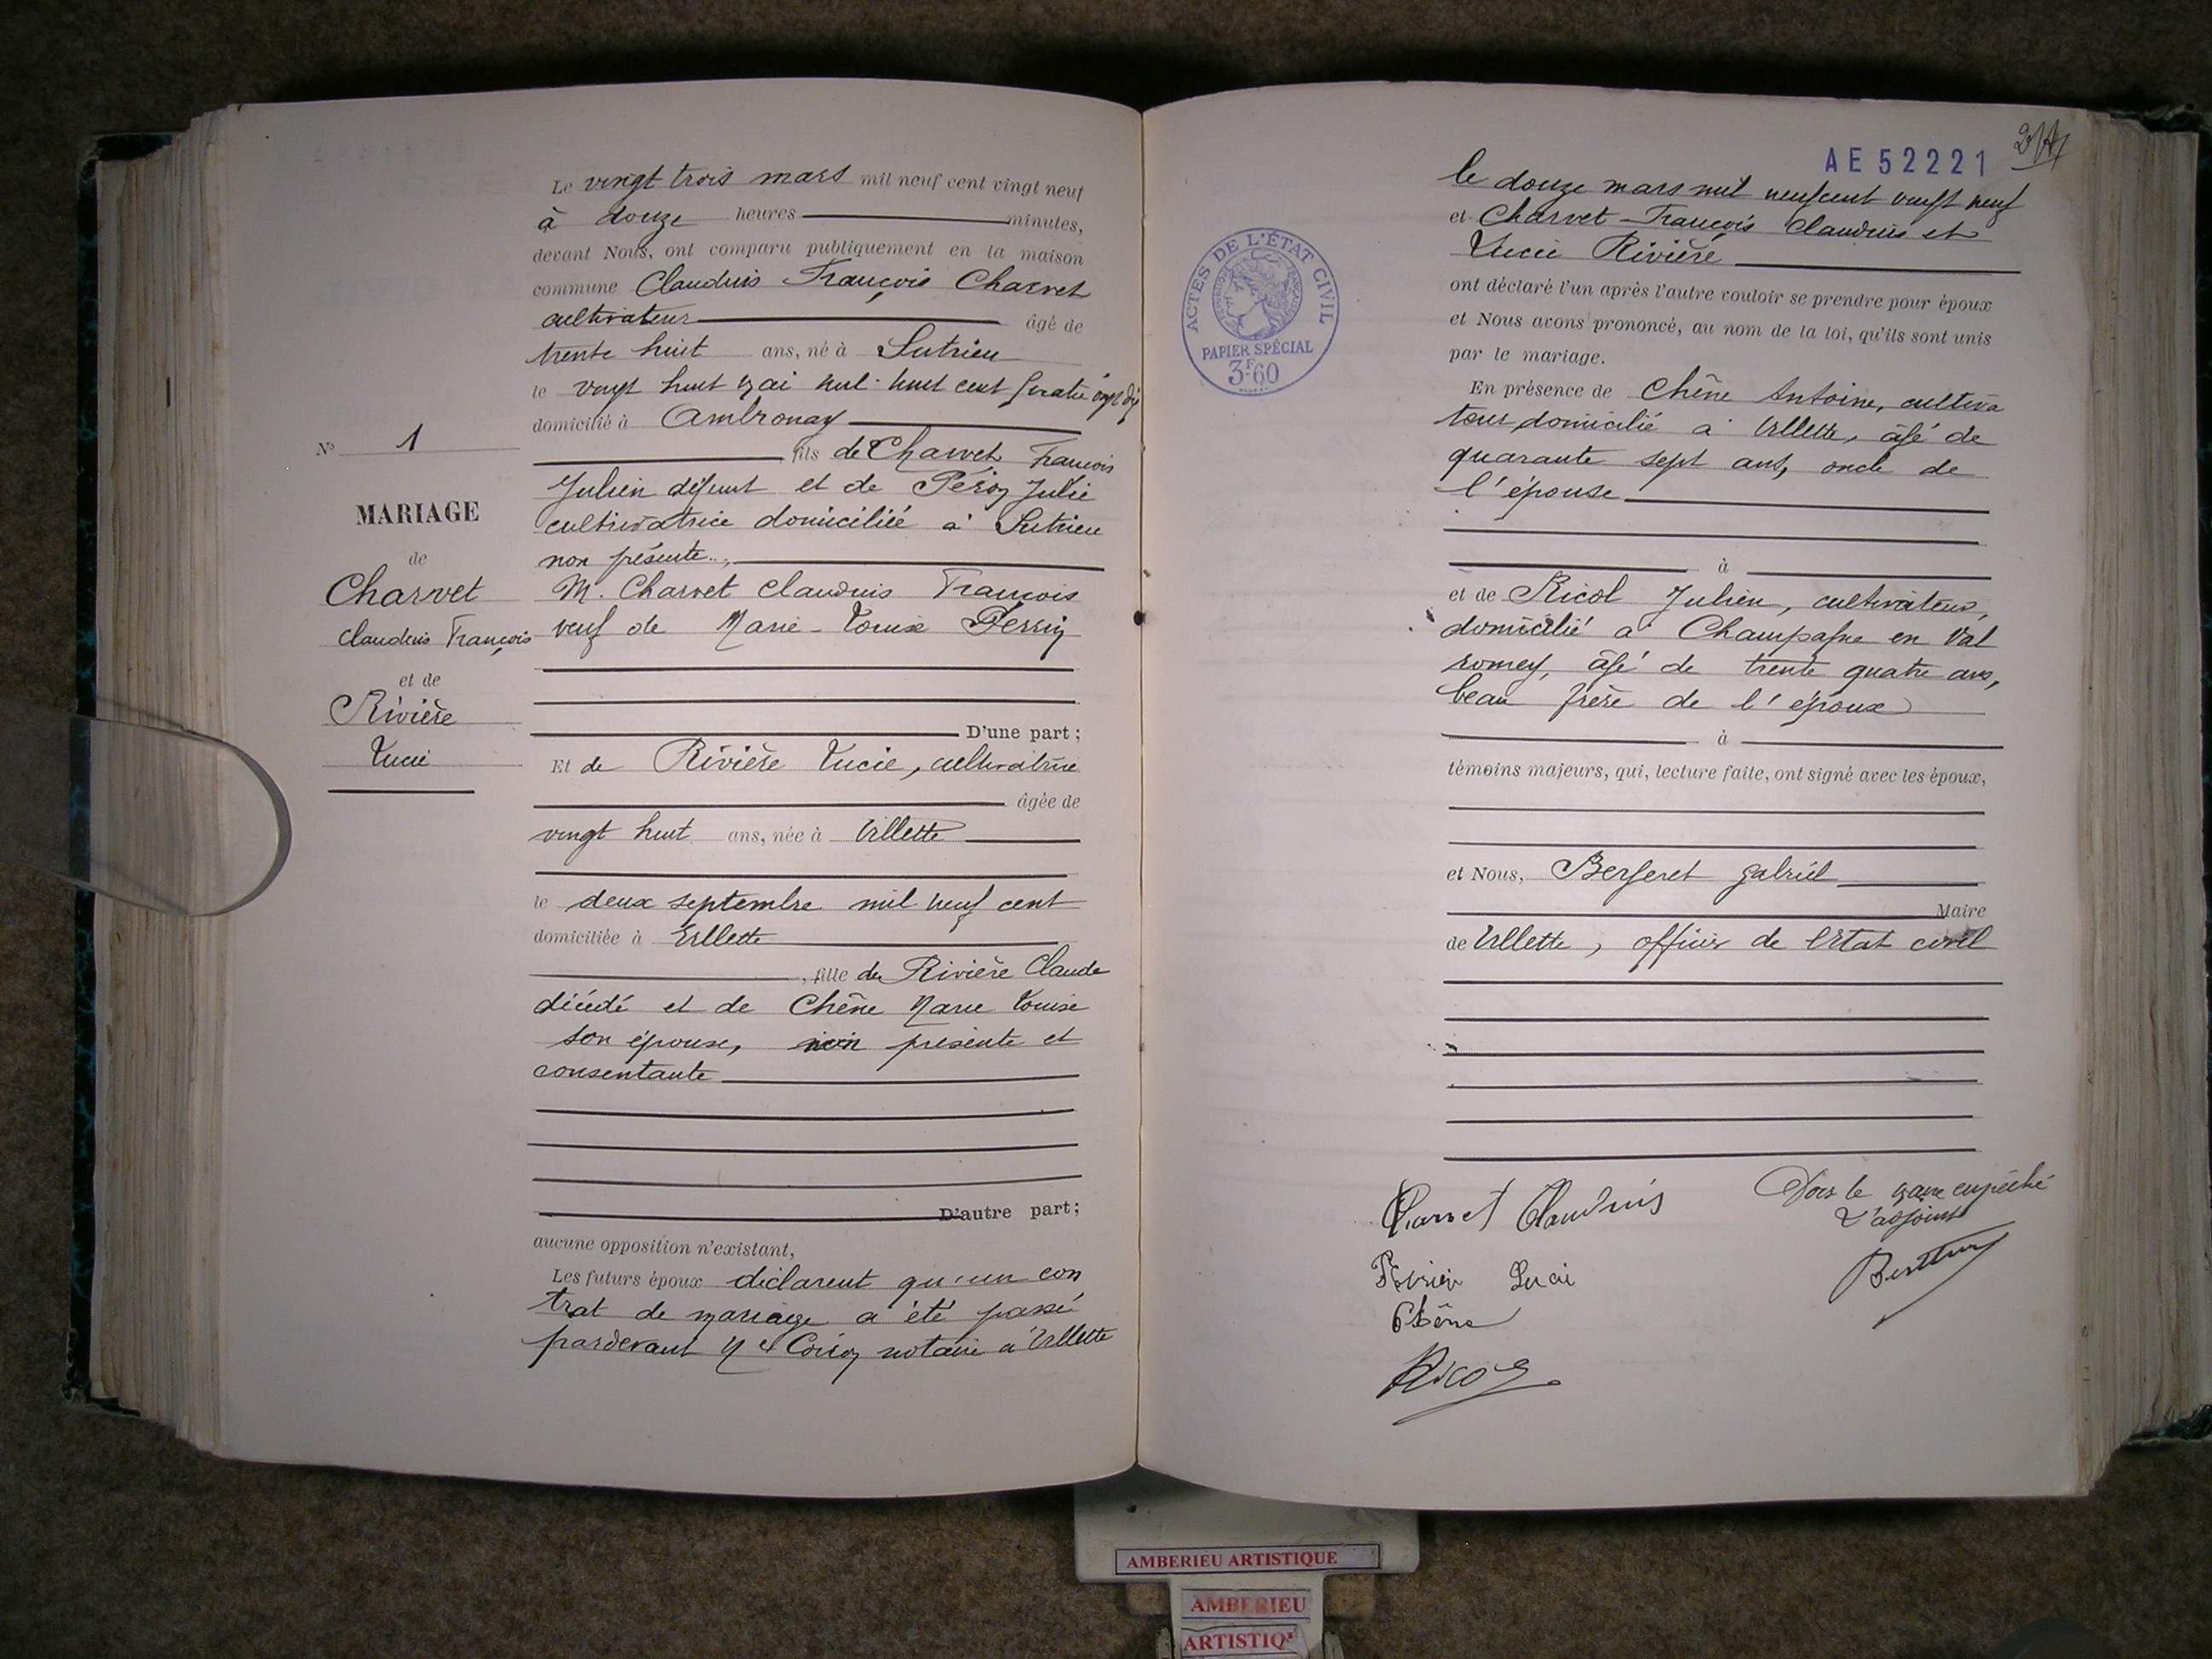 Le vingt trois mars mil neuf cent vingt neuf
à douze heures minutes,
devant Nous, ont comparu publiquement en la maison
commune Claudius François Charvet
cultivateur âgé de
trente huit ans, né à Sutrieu
le vingt huit mai mil huit cent quatre vingt dix
domicilié à Ambronay
fils de Charvet François
Julien défunt et de Julie
cultivatrice domiciliée à Sutrieu
non présente.,
M. Charvet Claudius François
veuf de Marie-Louise Perrin
D'une part;
Et de Rivière Lucie, cultivatrice
âgée de
vingt huit ans, née à Villette
le deux septembre mil neuf cent
domiciliée à Villette
, fille de Rivière Claude
décédé et de Chêne Marie Louise
son épouse, présente et
consentante
D'autre part;
aucune opposition n'existant,
Les futurs époux déclarent qu'un con
trat de mariage a été passé
pardevant Me notaire à Villette
N° 1
MARIAGE
de
Charvet
Claudius François
et de
Rivière
Lucie
AE 52221
le douze mars mil neuf cent vingt neuf
et Charvet François Claudius et
Lucie Rivière
ont déclaré l'un après l'autre vouloir se prendre pour époux
et Nous avons prononcé, au nom de la loi, qu'ils sont unis
par le mariage.
En présence de Chêne Antoine, cultiva
teur domicilié à Villette, âgé de
quarante sept ans, oncle de
l'épouse
à
et de Ricol Julien, cultivateur,
domicilié à Champagne en Val
romey, âgé de trente quatre ans,
beau frère de l'époux
à
témoins majeurs, qui, lecture faite, ont signé avec les époux,
et Nous, Bergeret Gabriel
Maire
de Villette, officier de l'Etat civil
Charvet Claudius
Rivière Luci
Chêne
Ricol
Pour le maire empêché
L'adjoint
ACTES DE L'ÉTAT CIVIL
PAPIER SPÉCIAL
3F60
AMBERIEU ARTISTIQUE
AMBERIEU
ARTISTIQ